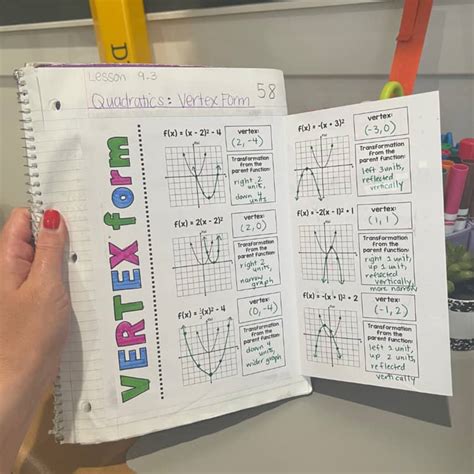 Lesson 9.3
Quadratics: Vertex Form
58
VERTEX form
f(x) = (x - 2)² - 4
vertex:
(2, -4)
Transformation
from the
parent function:
right 2
units,
down 4
units
f(x) = 2(x - 2)²
vertex:
(2, 0)
Transformation
from the
parent function:
right 2
units,
narrow
graph
vertex:
(0, -4)
Transformation
from the
parent function:
down 4
units,
wider graph
f(x) = -(x + 3)²
vertex:
(-3, 0)
Transformation
from the
parent function:
left 3 units,
reflected
vertically
f(x) = -2(x - 1)² + 1
vertex:
(1, 1)
Transformation
from the
parent function:
right 1 unit,
up 1 unit,
reflected
vertically,
more narrow
f(x) = -(x + 1)² + 2
vertex:
(-1, 2)
Transformation
from the
parent function:
left 1 unit,
up 2 units,
reflected
vertically